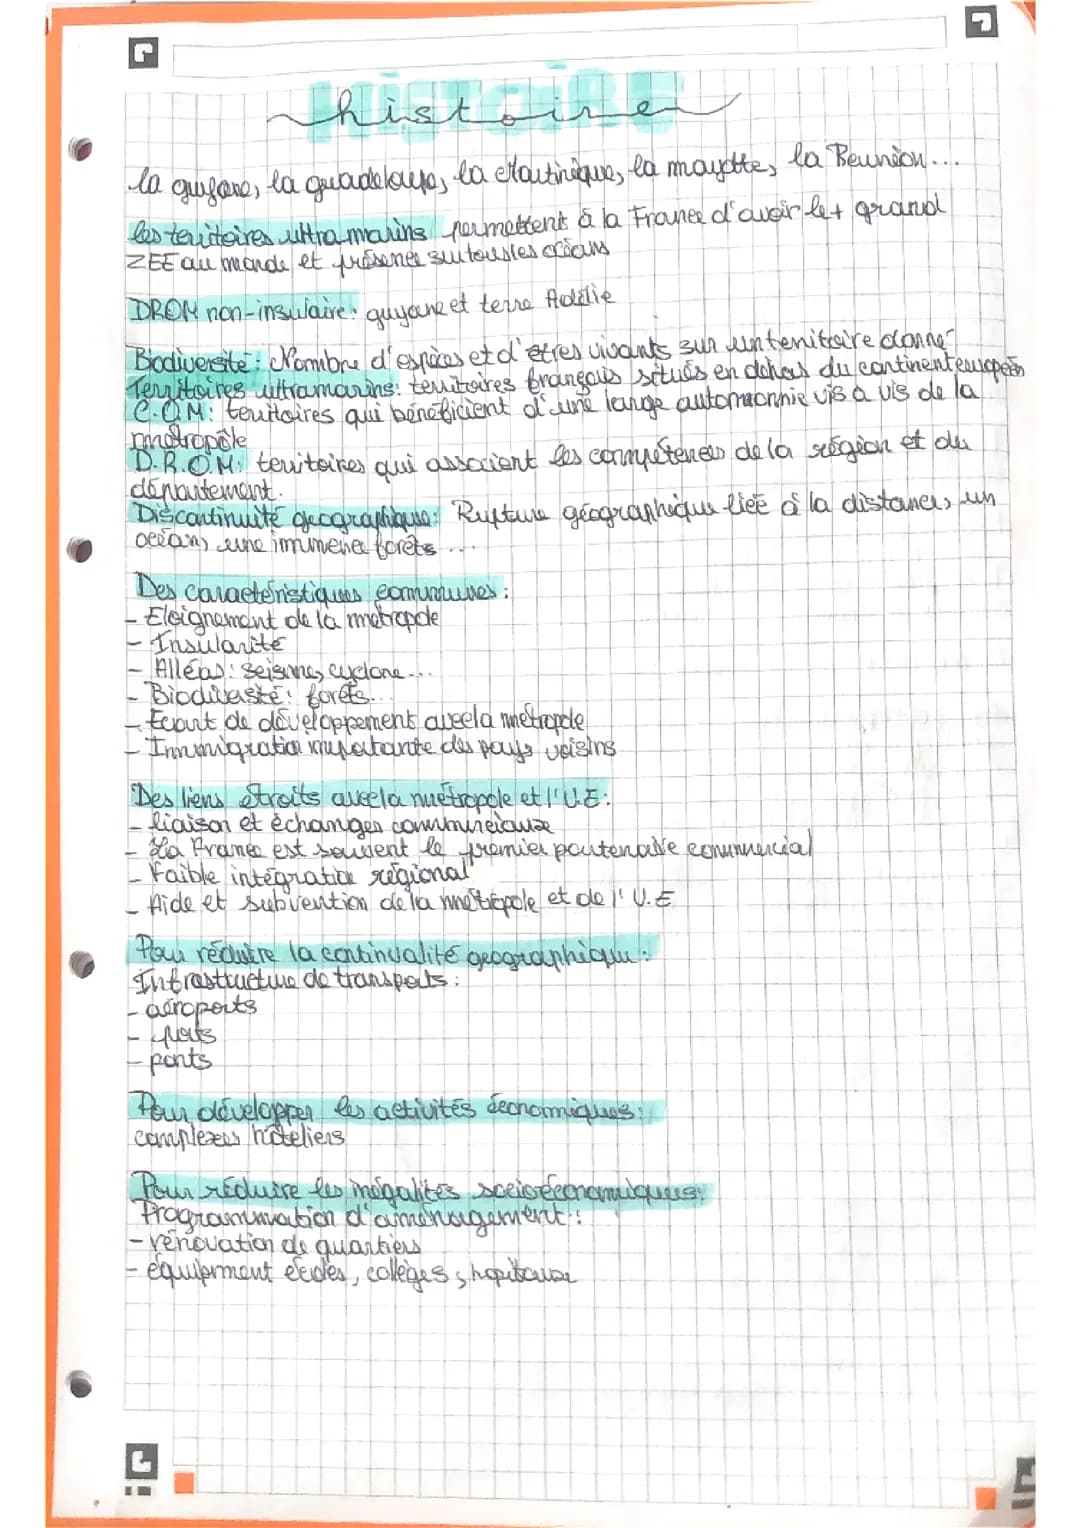 HISTOIRE
histoire
la guyane, la guadeloupe, la Martinique, la mayotte, la Réunion...
les territoires ultramarins permettent à la France d'avoir le + grand
ZEE au monde et présence sur tous les océans
DROM non-insulaire: guyane et terre Adélie
Biodiversité: Nombre d'espèces et d'êtres vivants sur un territoire donné
Territoires ultramarins: territoires français situés en dehors du continent européen
C.O.M: territoires qui bénéficient d'une large automonnie vis à vis de la
métropôle
D.R.O.M: territoires qui associent les compétences de la région et du
département.
Discontinuité géographique: Rupture géographique liée à la distance, un
océan, une immense forêts ...
Des caractéristiques communes:
- Eloignement de la métropole
- Insularité
- Alléas: seisme, cyclone...
- Biodivesté: forêts...
- Ecart de développement avec la métropole
- Immigration importante des pays voisins
Des liens étroits avec la métropole et l'U.E:
- liaison et échanges commerciaux
- La France est souvent le premier partenaire commercial
- Faible intégration régional
- Aide et subvention de la métropole et de l'U.E
Pour réduire la continualité geographique:
Infrastructure de transports:
- aéroports
- ports
- ponts
Pour développer les activités économiques:
complexes hôteliers
Pour réduire les inégalités socioéconomiques:
Programmation d'aménagement:
- rénovation de quartiers
- équipment écoles, collèges, hopitaux